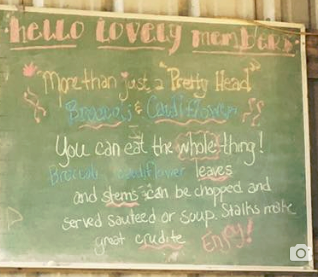 hello lovely members
More than just a "Pretty Head"
Broccoli & Cauliflower
You can eat the whole thing!
Broccoli, cauliflower leaves
and stems can be chopped and
served sauteed or soup. Stalks make
great crudite Enjoy!